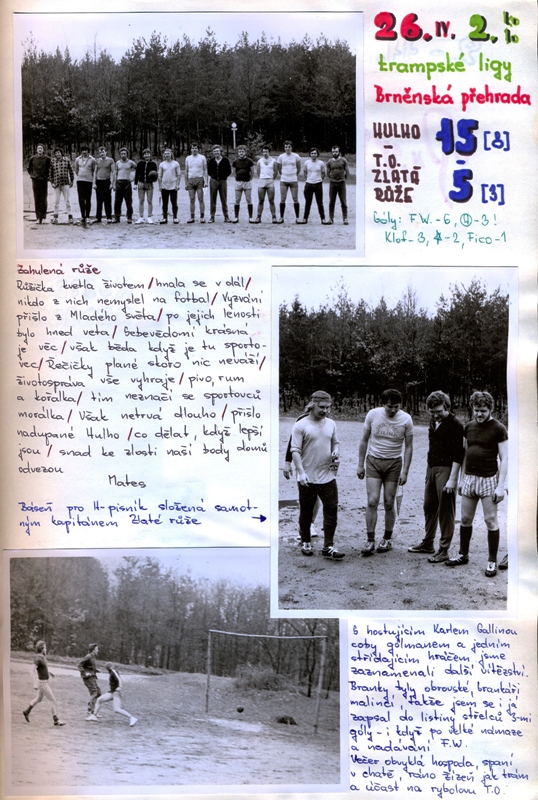 26. IV. 2. k.
trampské ligy
Brněnská přehrada
HULHO 15 [8]
-
T.O. ZLATÁ RŮŽE 5 [3]
Góly: F.W. - 6, - 3!
Klof - 3, - 2, Fico - 1
Zahulená růže
Růžička kvetla životem / hnala se v dál /
nikdo z nich nemyslel na fotbal / Vyzvání
přišlo z Mladého světa / po jejich lenosti
bylo hned veta / Sebevědomí krásná
je věc / však běda když je tu sporto-
vec / Řečičky plané skoro nic neváží /
životospráva vše vyhraje / pivo, rum
a kořalka / tím neznačí se sportovců
morálka / Však netrvá dlouho / přišlo
nadupané Hulho / co dělat, když lepší
jsou / snad ke zlosti naší body domů
odvezou
Mates
Báseň pro H-písník složená samot-
ným kapitánem Zlaté růže
S hostujícím Karlem Gallinou
coby gólmanem a jedním
střídajícím hráčem jsme
zaznamenali další vítězství.
Branky byly obrovské, brankáři
malincí, takže jsem se i já
zapsal do listiny střelců 3-mi
góly - i když po velké námaze
a nadávání F.W.
Večer obvyklá hospoda, spaní
v chatě, ráno žízeň jak trám
a účast na rybolovu T.O.